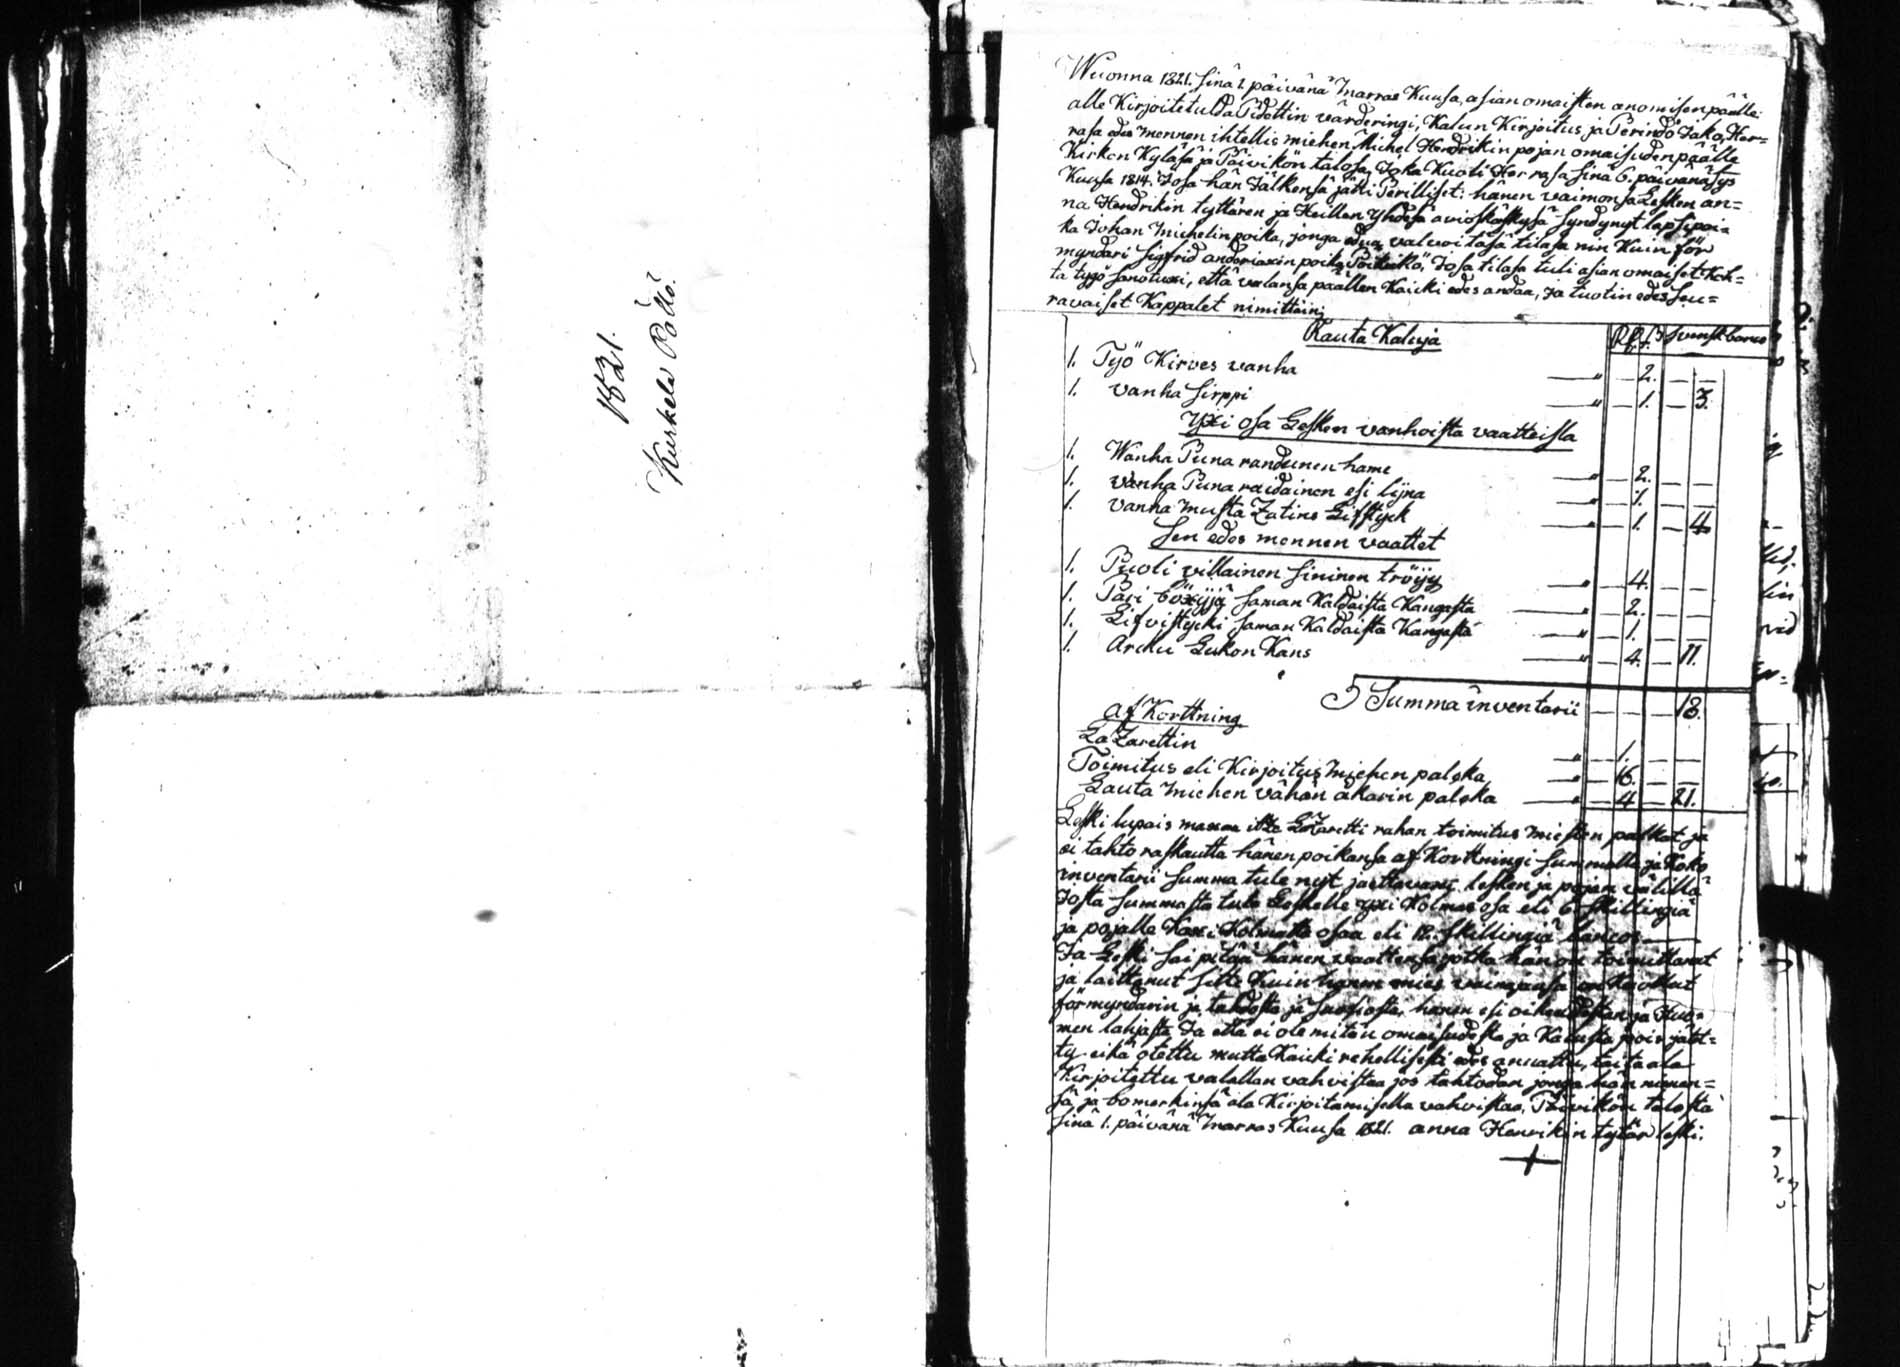 1821.
Kurkela Pöllö?
Wuonna 1821. sinä 1. päivänä Marras Kuusa, asian omaisten anomisen päälle
alle Kirjoitetulda Pidettin värderingi, Kalun Kirjoitus ja Perindö Jako, Her=
rasa edes mennen ihtellis miehen Michel Hendrikin pojan omaisuden päälle
Kirkon Kyläsä ja Päivikön talosa, Joka Kuoli Herrasa sinä 6. päivänä Sys
Kuusa 1814. Josa hän Jälkensä jätti Perilliset: hänen vaimonsa Lesken an=
na Hendrikin tyttären ja Heillen Yhdesä avioskäskysä syndynyt lapsi poi=
ka Johan Michelin poika, jonga edua valvoi täsä tilasa nin Kuin för
myndari Sigfrid anderiaxin poika Josa tilasa tuli asian omaiset Koh=
ta työ sanotuxi, että valansa päällen Kaicki edes andaa, ja tuotin edes seu=
ravaiset Kappalet nimittäin;
Rauta Kaluja Svensk banco
1. Työ Kirves vanha " — 2. — —
1. vanha Sirppi " — 1. — 3.
Yxi osa Lesken vanhoista vaatteista
1. Wanha Puna randunen hame " — 2. — —
1. vanha Puna raidainen esi lijna " — 1. — —
1. vanha musta Zatins Lifstyck " — 1. — 4
Sen edes mennen vaattet
1. Puoli villainen sininen tröijy " — 4. — —
1. Pari böxyjä saman Kaldaista Kangasta " — 2. — —
1. Lifvistycki saman Kaldaista Kangasta " — 1. — —
1. Arcku Lukon Kans " — 4. — 11.
Summa inventarii — — — 18.
Af Kortning
LaZarettin " — 1. — —
Toimitus eli Kirjoitus Miehen palcka " — 16. — —
Lauta Miehen vähän äkärin palcka " — 4 — 21.
Leski lupais maxaa itte LaZaretti rahan toimitus miesten palkat ja
ei tahto raskautta hänen poikansa af Kortningi Summalla ja Koko
inventarii Summa tule nyt jaettavaxi lesken ja pojan välillä
Josta Summasta tule Leskelle yxi Kolmas osa eli 6 skillingiä
ja pojalle Kaxi Kolmatta osaa eli 12. skillingiä bancos
Ja Leski sai pitää hänen vaattensa jotka hän on toimittanut
ja laittanut sitte Kuin hänen mies vainajansa on Kuollut
förmyndarin ja tahdosta ja Suosiosta, hänen esi oikeudestan ja Huo=
men lahjasta Ja että ei ole mitän omaisudesta ja Kalusta pois jätet=
ty eikä otettu mutta Kaicki rehellisesti edes annettu, taita ala
Kirjoitettu valallan vahvistaa jos tahdotan jonga hän nimen=
sä ja bomerkinsä ala Kirjoitamisella vahvistaa, Päivikön talosta
sinä 1. päivänä Marras Kuusa 1821. anna Henrikin tytär leski.